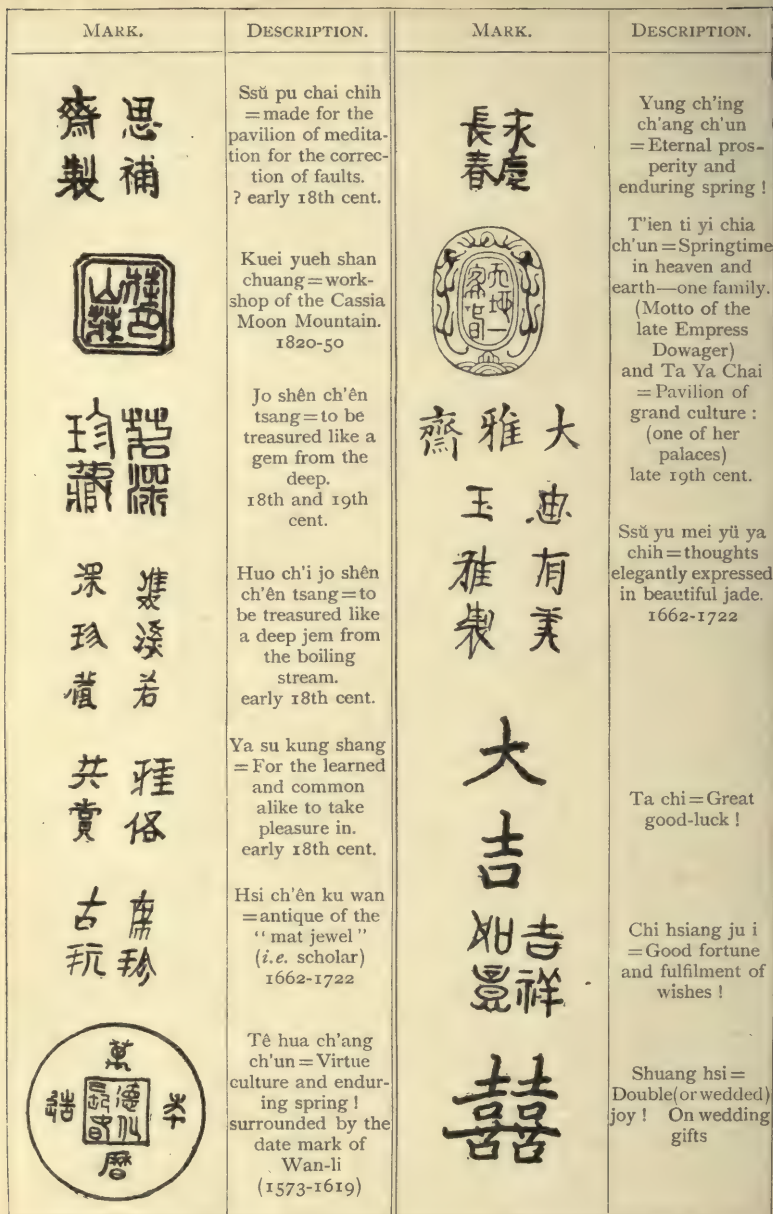 MARK.
DESCRIPTION.
思補
齋製
Ssŭ pu chai chih
=made for the
pavilion of medita-
tion for the correc-
tion of faults.
? early 18th cent.
桂月
山莊
Kuei yueh shan
chuang=work-
shop of the Cassia
Moon Mountain.
1820-50
若深
珍藏
Jo shên ch'ên
tsang=to be
treasured like a
gem from the
deep.
18th and 19th
cent.
溪若
深珍藏
Huo ch'i jo shên
ch'ên tsang=to
be treasured like
a deep jem from
the boiling
stream.
early 18th cent.
雅俗
共賞
Ya su kung shang
=For the learned
and common
alike to take
pleasure in.
early 18th cent.
席珍
古玩
Hsi ch'ên ku wan
=antique of the
"mat jewel"
(i.e. scholar)
1662-1722
萬曆年造
德化
長春
Tê hua ch'ang
ch'un=Virtue
culture and endur-
ing spring !
surrounded by the
date mark of
Wan-li
(1573-1619)
MARK.
DESCRIPTION.
永慶
長春
Yung ch'ing
ch'ang ch'un
=Eternal pros-
perity and
enduring spring !
天地一
家春
大雅齋
T'ien ti yi chia
ch'un=Springtime
in heaven and
earth—one family.
(Motto of the
late Empress
Dowager)
and Ta Ya Chai
=Pavilion of
grand culture :
(one of her
palaces)
late 19th cent.
有美
玉雅製
Ssŭ yu mei yü ya
chih=thoughts
elegantly expressed
in beautiful jade.
1662-1722
大吉
Ta chi=Great
good-luck !
吉祥
如意
Chi hsiang ju i
=Good fortune
and fulfilment of
wishes !
囍
Shuang hsi=
Double(or wedded)
joy ! On wedding
gifts